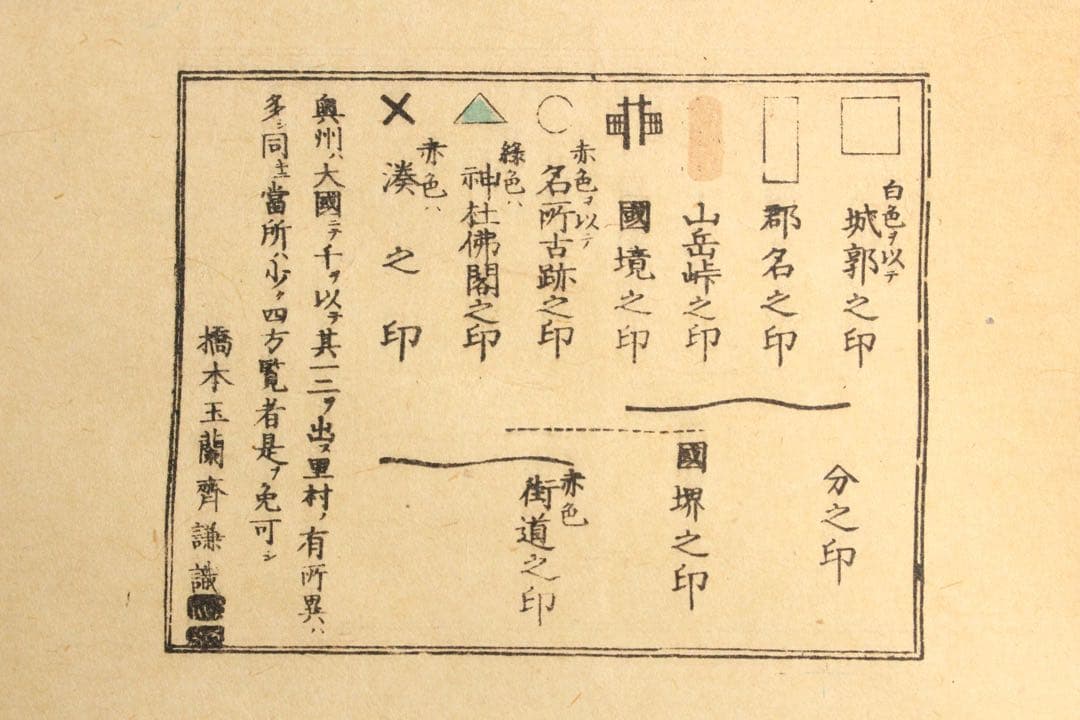 白色ヲ以テ
城郭之印
郡名之印
山岳峠之印
國境之印
赤色ヲ以テ
名所古跡之印
緑色ハ
神社佛閣之印
赤色ハ
湊之印
分之印
國堺之印
赤色
街道之印
奥州ハ大國ニテ千ヲ以テ其一二ヲ出ス里村ノ有所異ハ
多シ同主當所ハ少ク四方覧者是ヲ免可シ
橋本玉蘭齊謙識